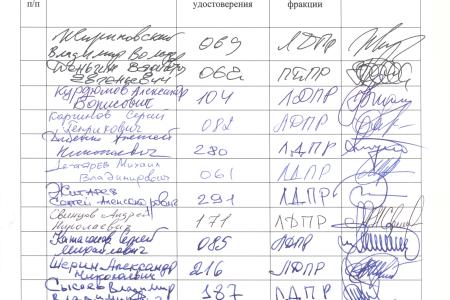 п/п удостоверения фракции
Жириновский
Владимир 069 ЛДПР
Евгеньевич 062
Курдюмов Александр
Борисович 104 ЛДПР
Каргинов Сергей 082 ЛДПР
Генрихович
Диденко Алексей
Николаевич 280 ЛДПР
Дегтярев Михаил
Владимирович 061 ЛДПР
Жигарев
Сергей Александрович 291 ЛДПР
Свинцов Андрей
Николаевич 171 ЛДПР
Катасонов Сергей
Михайлович 085 ЛДПР
Шерин Александр
Николаевич 216 ЛДПР
Сысоев Владимир
187 ЛДПР